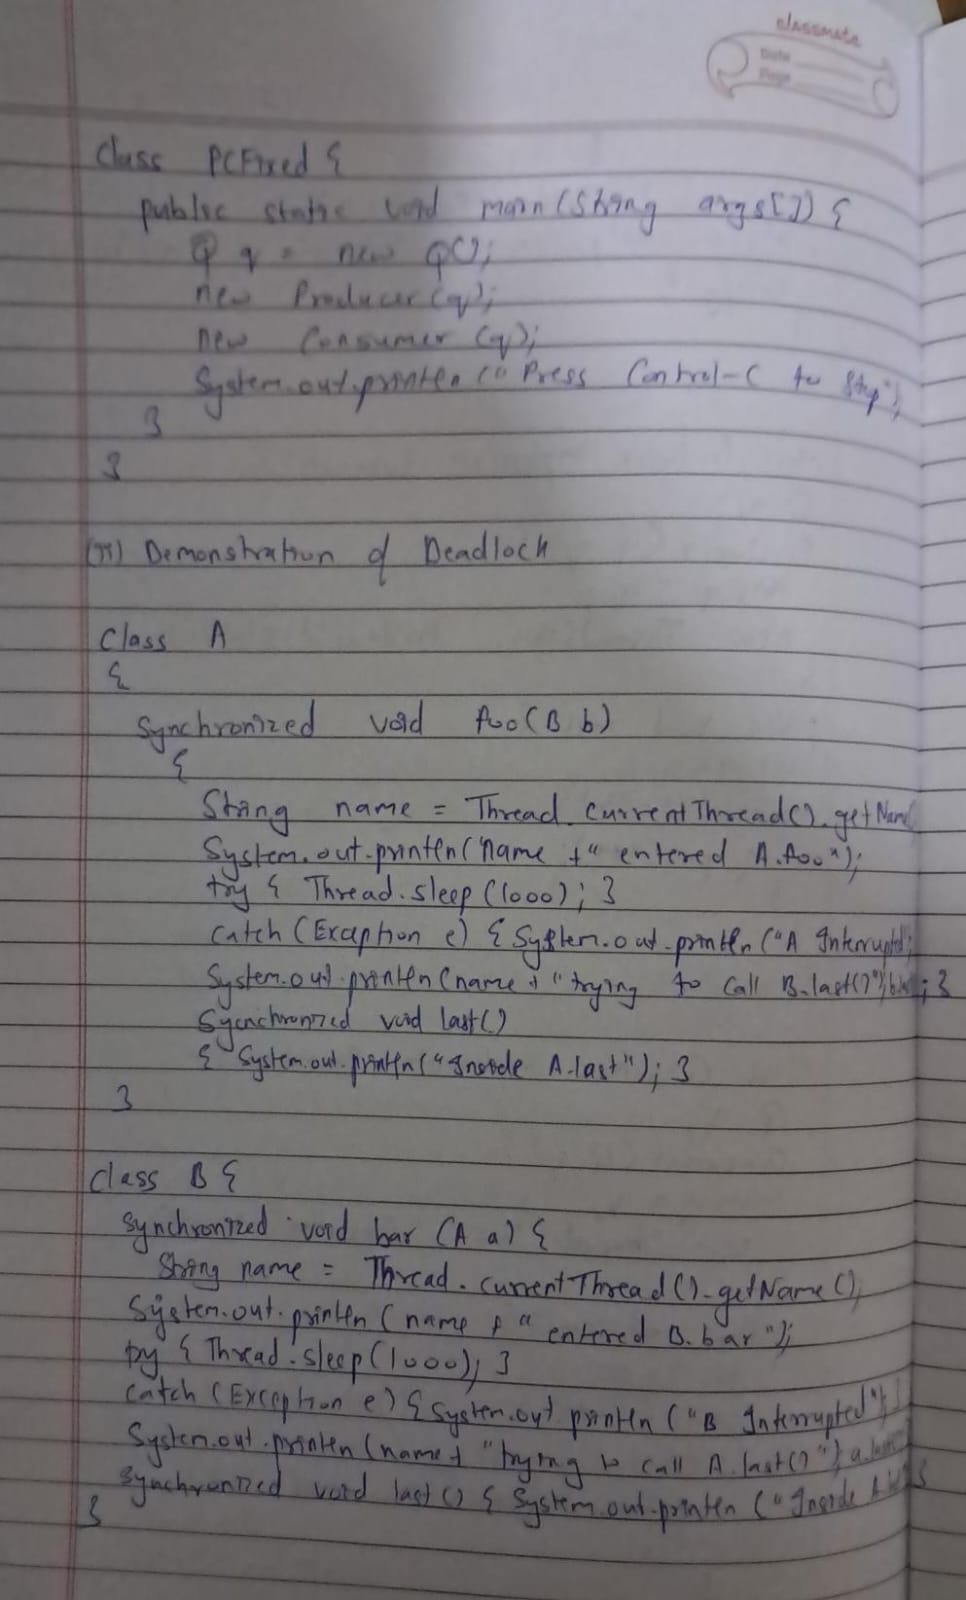 classmate
Date
Page
class PCFixed {
public static void main(String args[]) {
Q q = new Q();
new Producer(q);
new Consumer(q);
System.out.println("Press Control-C to Stop");
}
}
(ii) Demonstration of Deadlock
Class A
{
Synchronized void foo(B b)
{
String name = Thread.currentThread().getName
System.out.println(name +" entered A.foo");
try { Thread.sleep(1000); }
catch (Exception e) { System.out.println("A Interrupted
System.out.println(name + "trying to call B.last()"); }
Synchronized void last()
{ System.out.println("Inside A.last"); }
}
class B {
Synchronized void bar (A a) {
String name = Thread.currentThread().getName();
System.out.println(name + " entered B.bar");
try { Thread.sleep(1000); }
catch (Exception e) { System.out.println("B Interrupted");
System.out.println(name + "trying to call A.last()");
Synchronized void last() { System.out.println("Inside
}